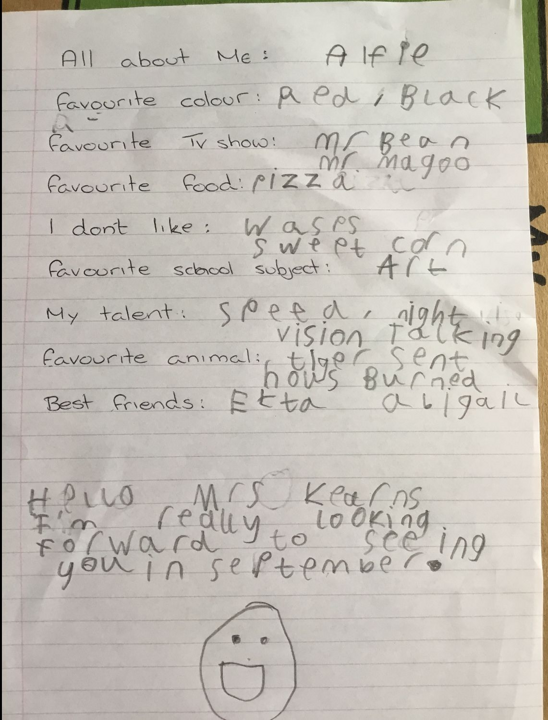 All about Me: Alfie
favourite colour: Red, Black
favourite Tv show: Mr Bean
mr magoo
favourite food: pizza
I dont like: wases
sweet corn
favourite school subject: Art
My talent: speed, night
vision Talking
favourite animal: tiger sent
hows Burned
Best friends: Etta abigail
Hello Mrs Kearns
I'm really looking
forward to seeing
you in september.